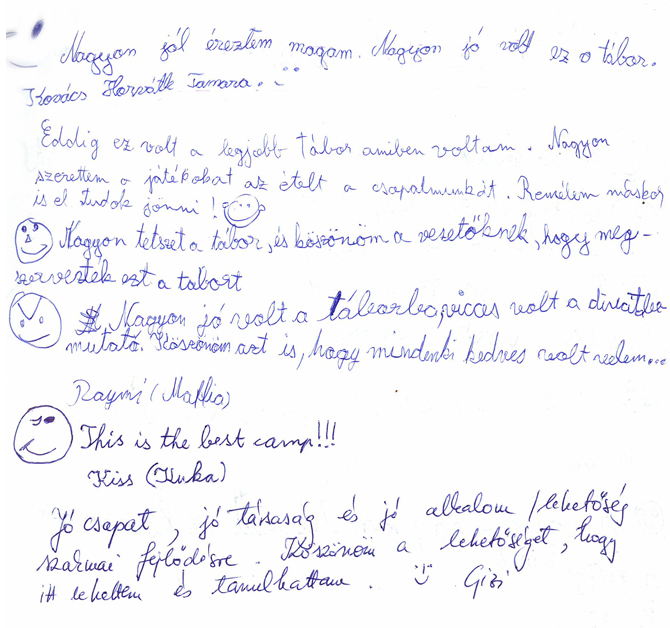 Nagyon jól éreztem magam. Nagyon jó volt ez a tábor.
Kovács Horváth Tamara.
Eddig ez volt a legjobb tábor amiben voltam. Nagyon
szerettem a játékokat az ételt a csapatmunkát. Remélem máskor
is el tudok jönni!
Nagyon tetszet a tábor, és köszönöm a vezetőknek, hogy meg-
szervezték ezt a tábort
Nagyon jó volt a táborba, vicces volt a divatba
mutató. Köszönöm azt is, hogy mindenki kedves volt velem...
Raymi (Maffia)
This is the best camp!!!
Kiss (Kuka)
Jó csapat, jó társaság és jó alkalom/lehetőség
szakmai fejlődésre. Köszönöm a lehetőséget, hogy
itt lehettem és tanulhattam. Gizi